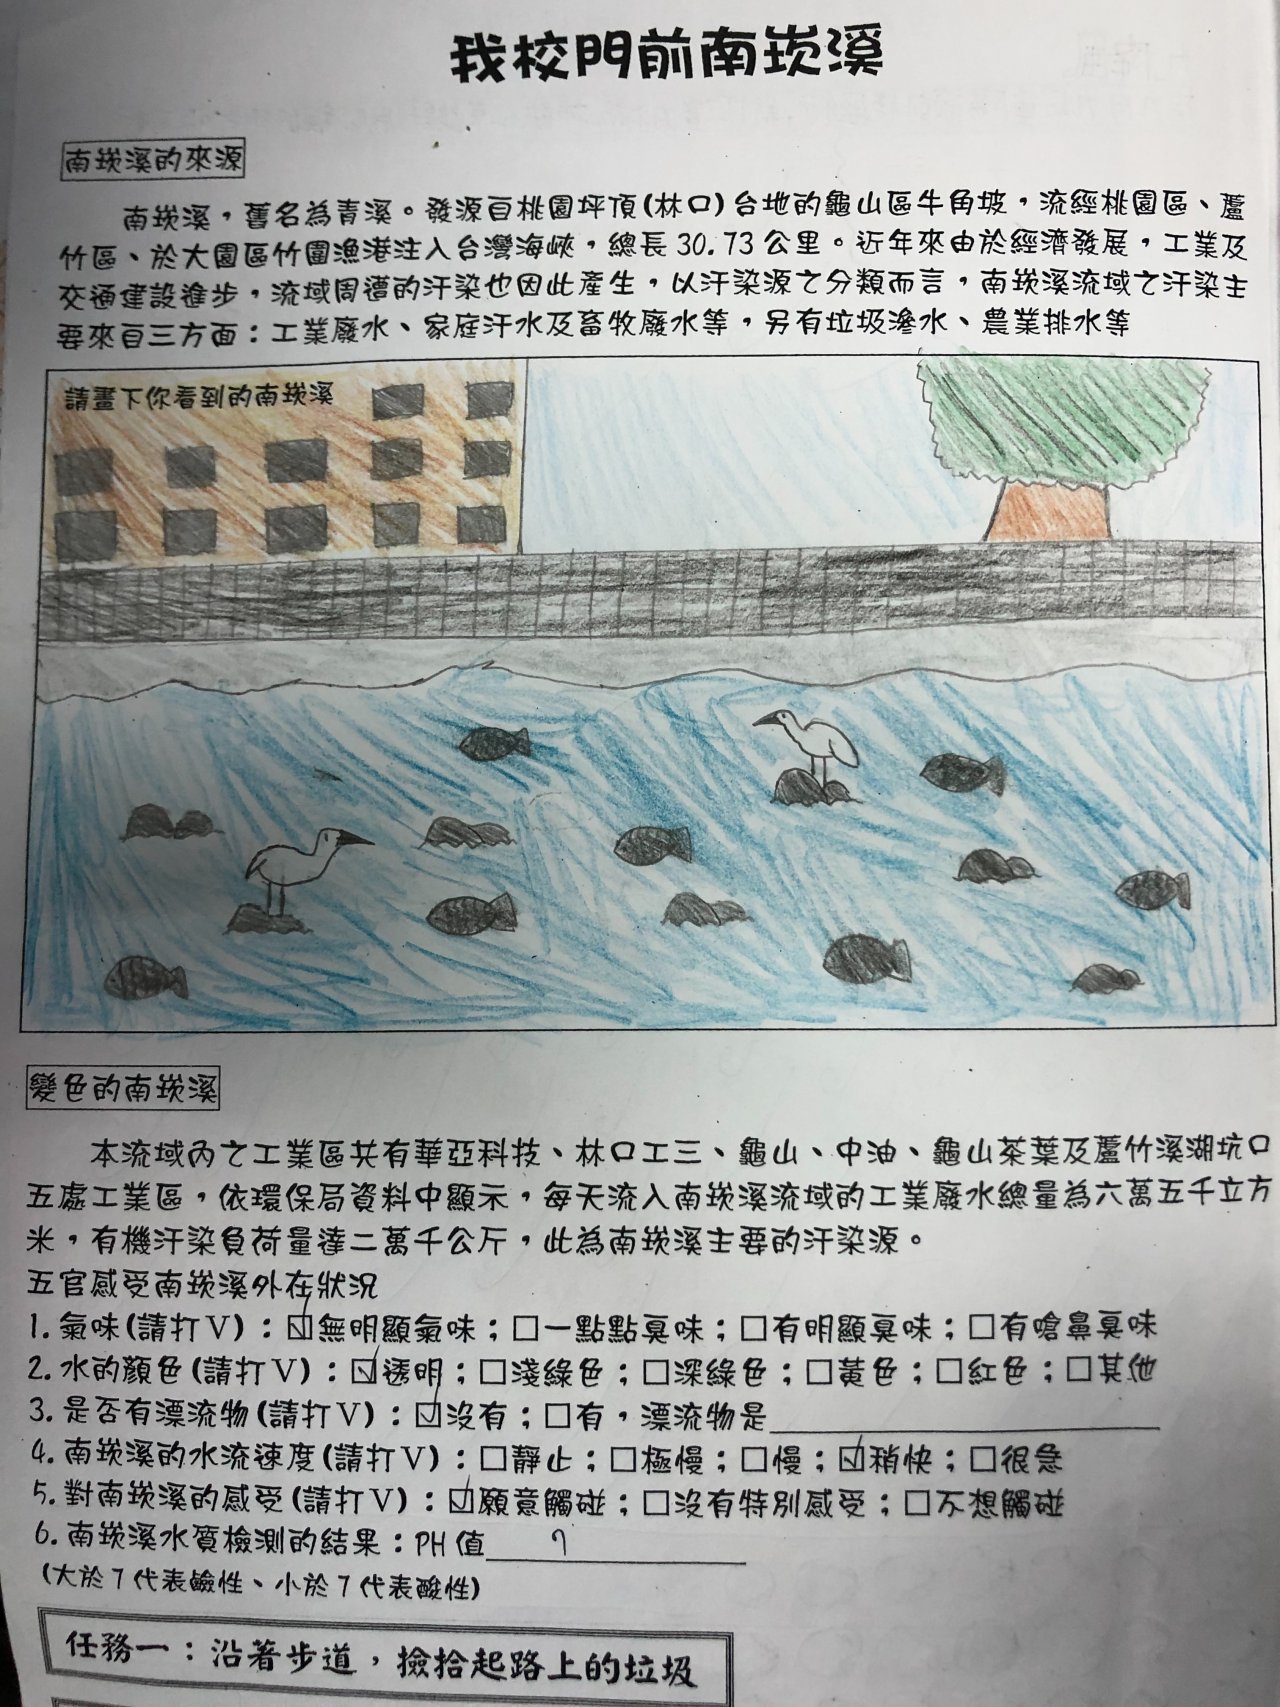 我校門前南崁溪
南崁溪的來源
南崁溪，舊名為青溪。發源自桃園坪頂(林口)台地的龜山區牛角坡，流經桃園區、蘆
竹區、於大園區竹圍漁港注入台灣海峽，總長30.73公里。近年來由於經濟發展，工業及
交通建設進步，流域周遭的汙染也因此產生，以汙染源之分類而言，南崁溪流域之汙染主
要來自三方面：工業廢水、家庭汙水及畜牧廢水等，另有垃圾滲水、農業排水等
請畫下你看到的南崁溪
變色的南崁溪
本流域內之工業區共有華亞科技、林口工三、龜山、中油、龜山茶葉及蘆竹溪湖坑口
五處工業區，依環保局資料中顯示，每天流入南崁溪流域的工業廢水總量為六萬五千立方
米，有機汙染負荷量達二萬千公斤，此為南崁溪主要的汙染源。
五官感受南崁溪外在狀況
1.氣味(請打V)：☑無明顯氣味；□一點點臭味；□有明顯臭味；□有嗆鼻臭味
2.水的顏色(請打V)：☑透明；□淺綠色；□深綠色；□黃色；□紅色；□其他
3.是否有漂流物(請打V)：☑沒有；□有，漂流物是
4.南崁溪的水流速度(請打V)：□靜止；□極慢；□慢；☑稍快；□很急
5.對南崁溪的感受(請打V)：☑願意觸碰；□沒有特別感受；□不想觸碰
6.南崁溪水質檢測的結果：PH值 7
(大於7代表鹼性、小於7代表酸性)
任務一：沿著步道，撿拾起路上的垃圾